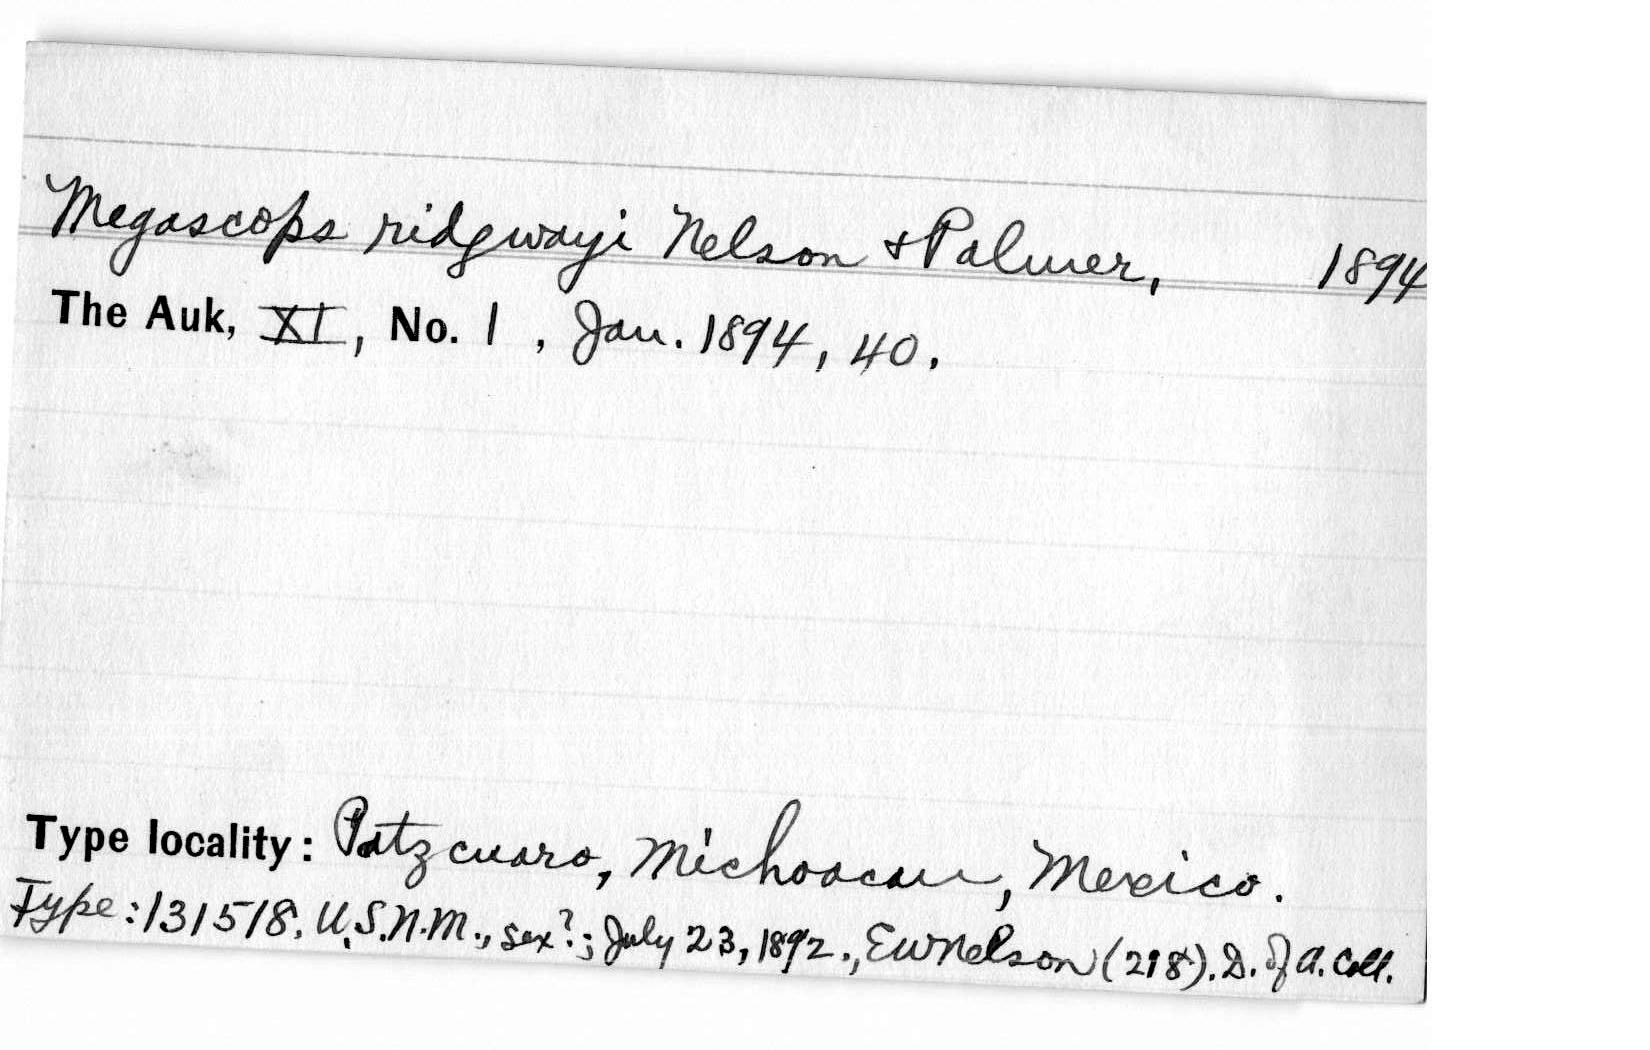 Megascops ridgwayi Nelson & Palmer, 1894
The Auk, XI, No. 1, Jan. 1894, 40.
Type locality: Patzcuaro, Michoacan, Mexico.
Type: 131518, U.S.N.M., sex?; July 23, 1892., EWNelson (218). D. of A. Coll.